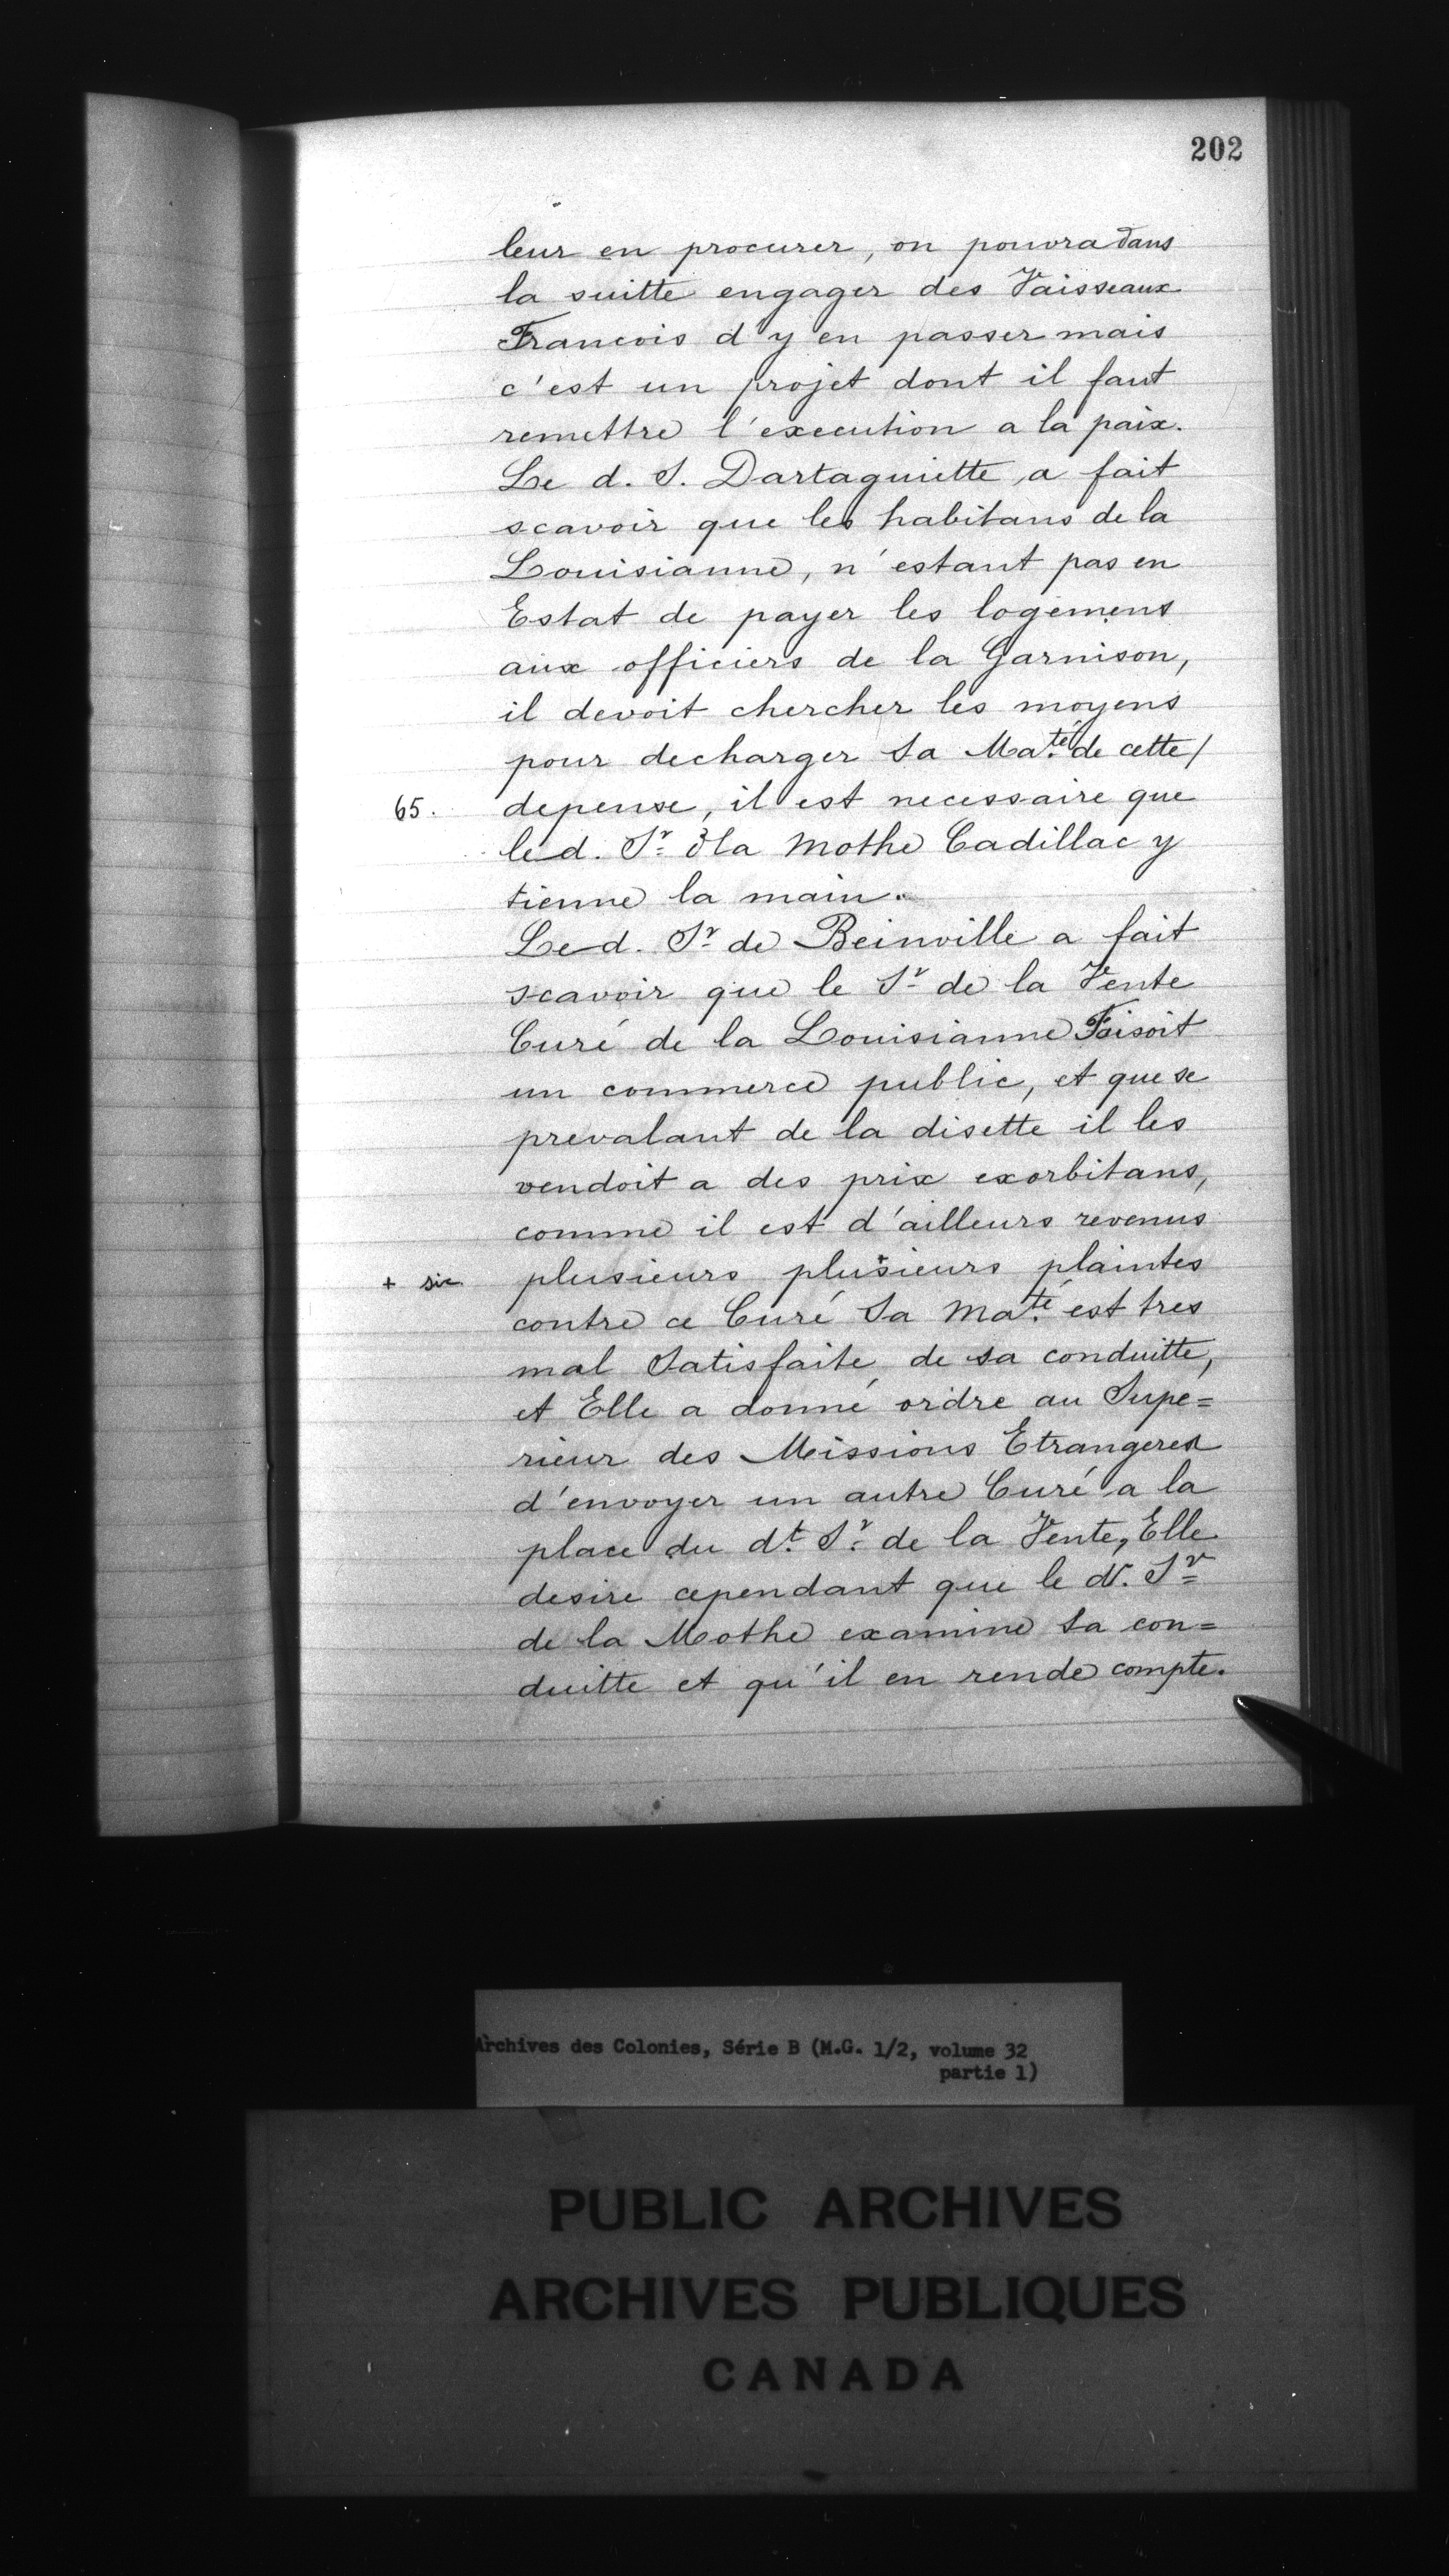 202
leur en procurer, on pouvra dans
la suitte engager des Vaisseaux
Francois d'y en passer mais
c'est un projet dont il faut
remettre l'execution a la paix.
Le d. S. Dartaguiette, a fait
scavoir que les habitans de la
Louisianne, n'estant pas en
Estat de payer les logemens
aux officiers de la Garnison,
il devoit chercher les moyens
pour decharger Sa Ma.té de cette/
65. depense, il est necessaire que
le d. Sr. de la Mothe Cadillac y
tienne la main.
Le d. Sr de Beinville a fait
scavoir que le Sr de la Vente
Curé de la Louisianne Faisoit
un commerce public, et que se
prevalant de la disette il les
vendoit a des prix exorbitans,
comme il est d'ailleurs revenus
+ sic plusieurs plusieurs plaintes
contre ce Curé Sa Ma.té est tres
mal Satisfaite, de sa conduitte,
et Elle a donné ordre au Supe=
rieur des Missions Etrangeres
d'envoyer un autre Curé a la
place du d.t S.r de la Vente, Elle
desire cependant que le d. Sr
de la Mothe examine sa con=
duitte et qu'il en rende compte.
Archives des Colonies, Série B (M.G. 1/2, volume 32
partie 1)
PUBLIC ARCHIVES
ARCHIVES PUBLIQUES
CANADA